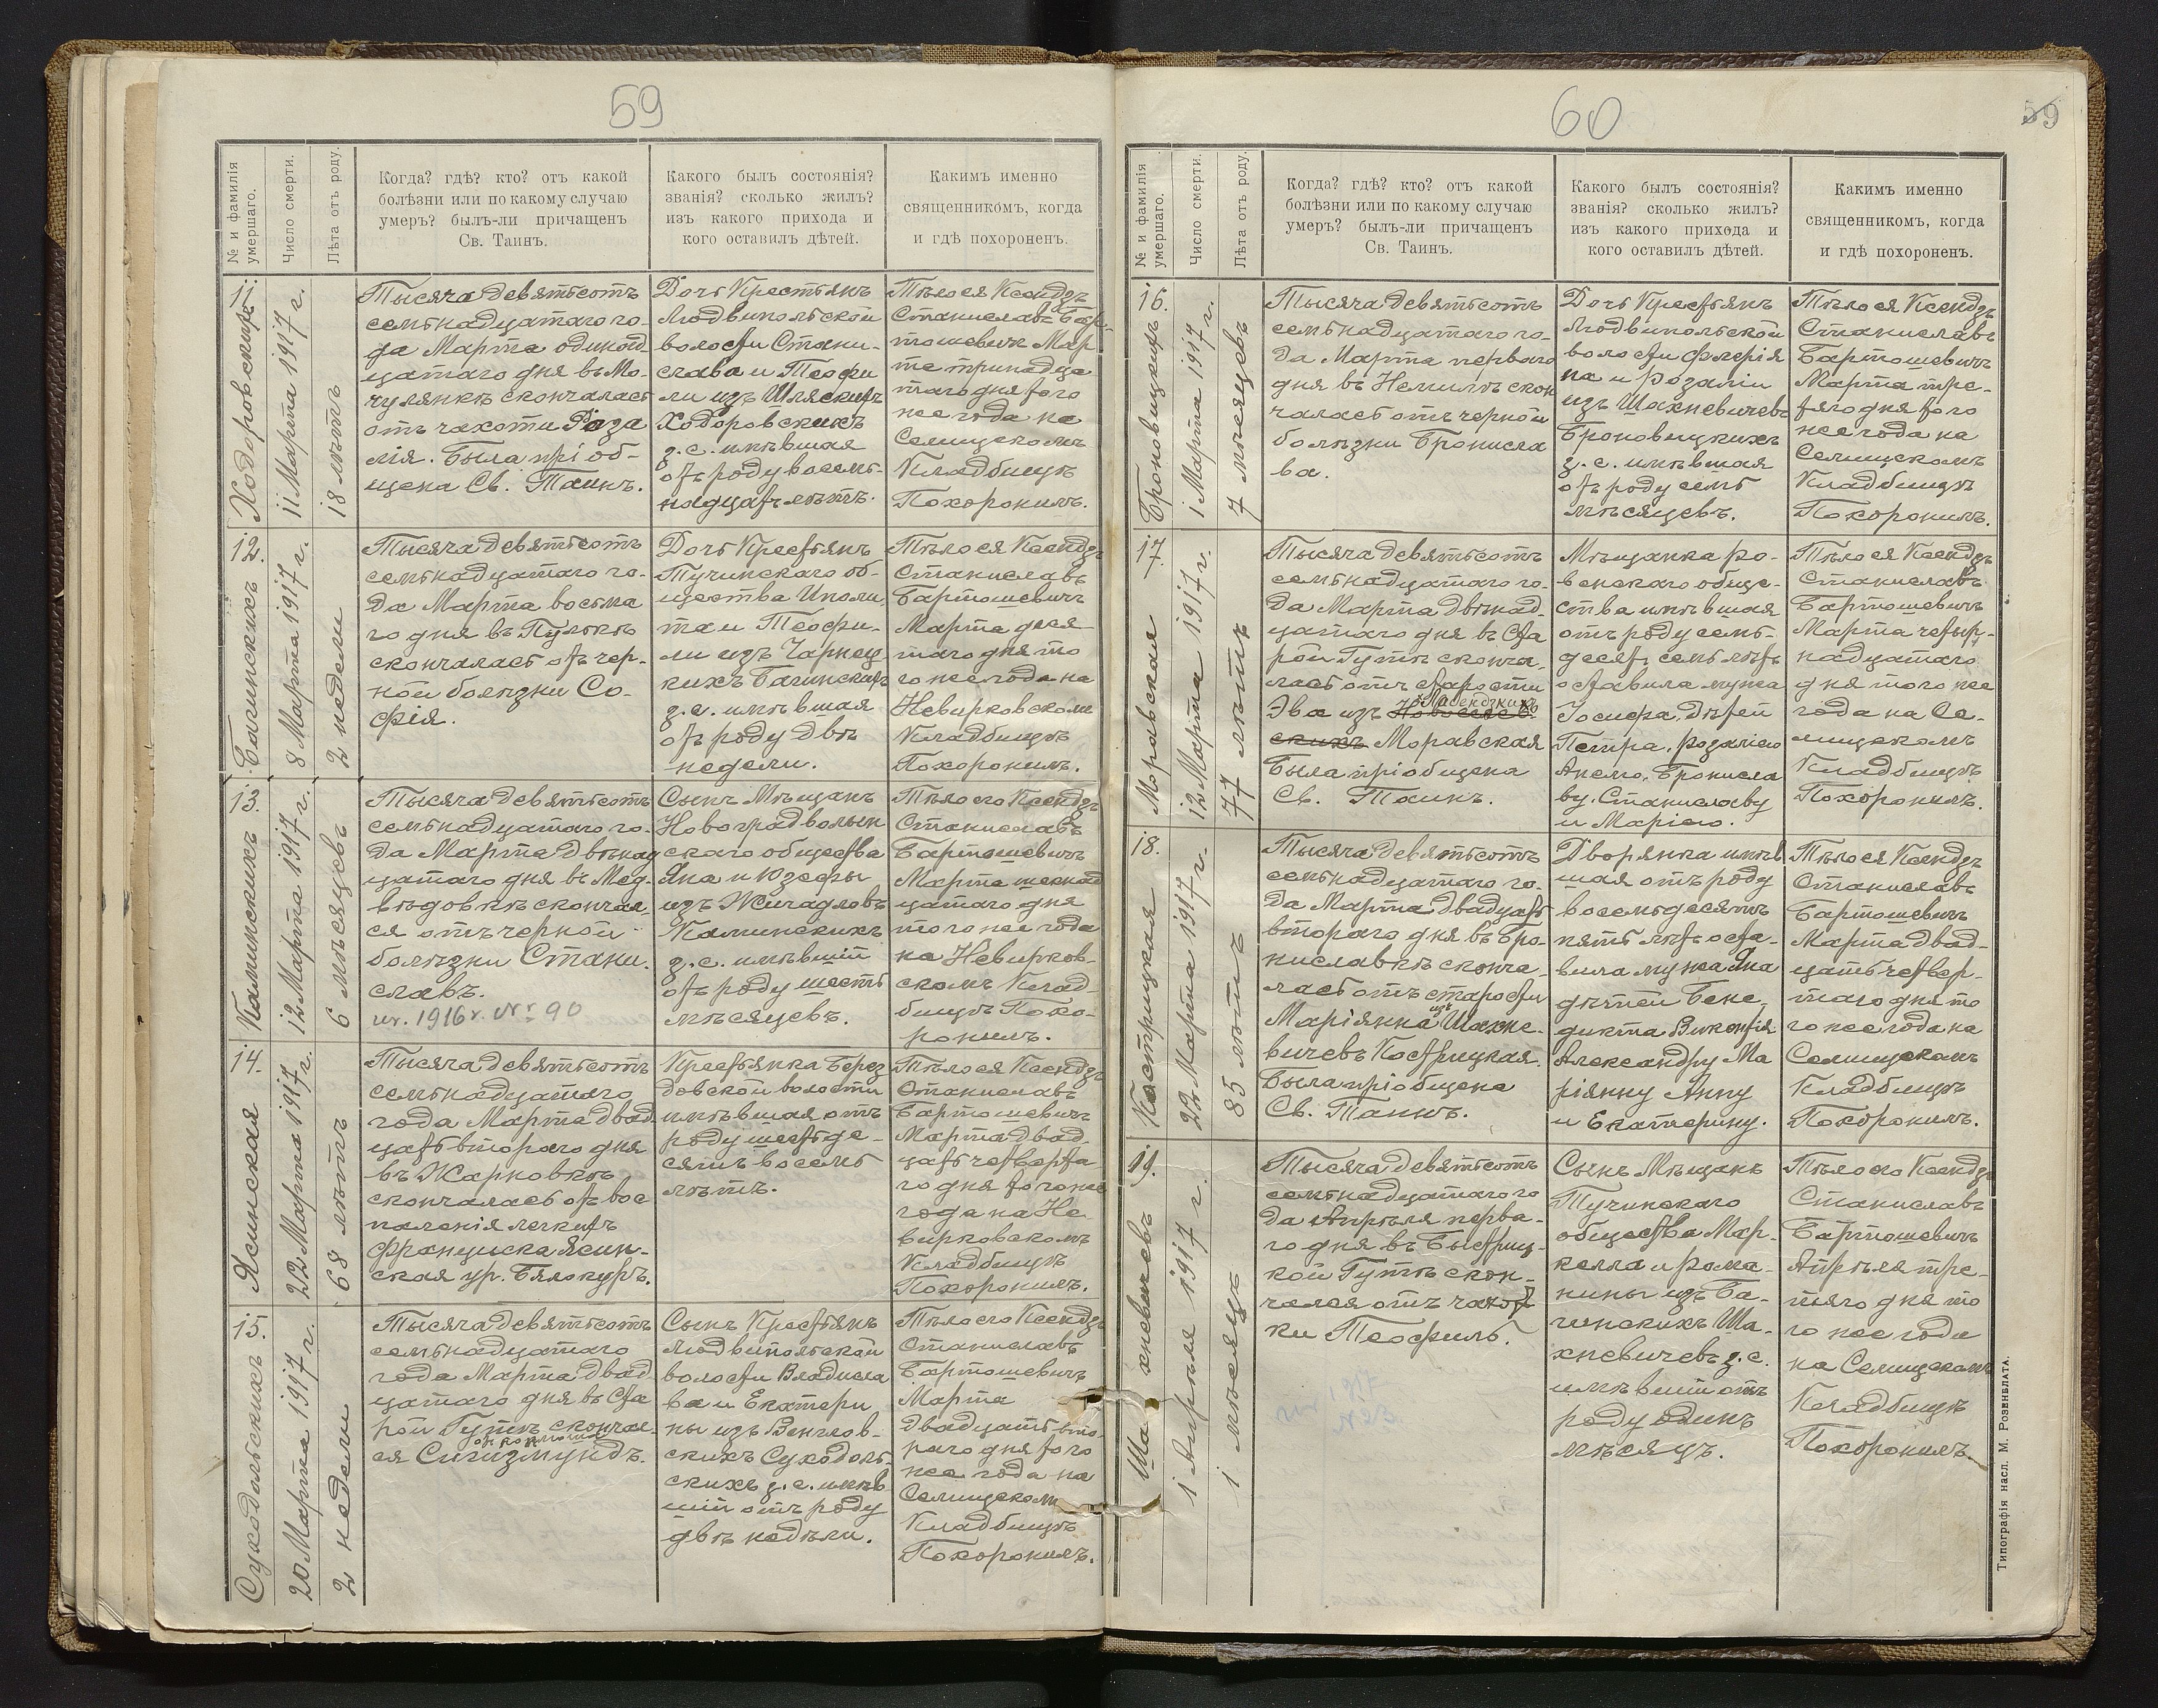 59
№ и фамилія
умершаго.
Число смерти.
Лѣта отъ роду.
Когда? гдѣ? кто? отъ какой
болѣзни или по какому случаю
умеръ? былъ-ли причащенъ
Св. Таинъ.
Какого былъ состоянія?
званія? сколько жилъ?
изъ какого прихода и
кого оставилъ дѣтей.
Какимъ именно
священникомъ, когда
и гдѣ похороненъ.
11.
Ходоровскихъ
11 Марта 1917 г.
18 лѣтъ
Тысяча девятьсотъ
семьнадцатаго го-
да Марта одинад-
цатаго дня въ Мо-
чулянкѣ скончалась
отъ чахотки Роза
лія. Была пріоб-
щена Св. Таинъ.
Дочь Крестьянъ
Людвипольской
волости Стани-
слава и Теофи
ли изъ Шляскихъ
Ходоровскихъ
з. с. имѣвшая
отъ роду восемь-
надцать лѣтъ.
Тѣло ея Ксендзъ
Станиславъ Бар-
тошевичъ Мар
та тринадца
таго дня того
же года на
Селищскомъ
Кладбищѣ
Похоронилъ.
12.
Багинскихъ
8 Марта 1917 г.
2 недели
Тысяча девятьсотъ
семьнадцатаго го-
да Марта восьма
го дня въ Пулькѣ
скончалась отъ чер-
ной болѣзни Со-
фія.
Дочь Крестьянъ
Тучинскаго об-
щества Иполи
та и Теофи-
ли изъ Чарнец
кихъ Багинскихъ
з. с. имѣвшая
отъ роду двѣ
недели.
Тѣло ея Ксендзъ
Станиславъ
Бартошевичъ
Марта деся
таго дня то
го же года на
Невирковскомъ
Кладбищѣ
Похоронилъ.
13.
Калинскихъ
12 Марта 1917 г.
6 мѣсяцевъ
Тысяча девятьсотъ
семьнадцатаго го-
да Марта двѣнад
цатаго дня въ Мед-
вѣдовкѣ скончал-
ся отъ черной
болѣзни Стани-
славъ.
ur. 1916 r. Nr 90
Сынъ Мѣщанъ
Новоградволын
скаго общества
Яна и Юзефы
изъ Жигадловъ
Калинскихъ
з. с. имѣвшій
отъ роду шесть
мѣсяцевъ.
Тѣло его Ксендзъ
Станиславъ
Бартошевичъ
Марта шеснад
цатаго дня
того же года
на Невирков-
скомъ Клад-
бищѣ Похо-
ронилъ.
14.
Ясинская
22 Марта 1917 г.
68 лѣтъ
Тысяча девятьсотъ
семьнадцатаго
года Марта двад-
цать второго дня
въ Жарновкѣ
скончалась отъ вос
паленія легкихъ
Францишка Ясин-
ская ур. Бялокуръ.
Крестьянка Берез
довской волости
имѣвшая отъ
роду шестьде-
сятъ восемь
лѣтъ.
Тѣло ея Ксендзъ
Станиславъ
Бартошевичъ
Марта двад-
цать четверта
го дня того же
года на Не
вирковскомъ
Кладбищѣ
Похоронилъ.
15.
Суходольскихъ
20 Марта 1917 г.
2 недели
Тысяча девятьсотъ
семьнадцатаго
года Марта двад
цатаго дня въ Ста
рой Гутѣ скончал-
ся Сигизмундъ.
Сынъ Крестьянъ
Людвипольской
волости Владисла
ва и Екатери
ны изъ Венглов-
скихъ Суходоль-
скихъ з. с. имѣв
шій отъ роду
двѣ недѣли.
Тѣло его Ксендзъ
Станиславъ
Бартошевичъ
Марта
Двадцать вто-
рого дня того
же года на
Селищскомъ
Кладбищѣ
Похоронилъ.
60
59
№ и фамилія
умершаго.
Число смерти.
Лѣта отъ роду.
Когда? гдѣ? кто? отъ какой
болѣзни или по какому случаю
умеръ? былъ-ли причащенъ
Св. Таинъ.
Какого былъ состоянія?
званія? сколько жилъ?
изъ какого прихода и
кого оставилъ дѣтей.
Какимъ именно
священникомъ, когда
и гдѣ похороненъ.
16.
Броновицкихъ
1 Марта 1917 г.
7 мѣсяцевъ
Тысяча девятьсотъ
семьнадцатаго го-
да Марта перваго
дня въ Немилѣ скон
чалась отъ черной
болѣзни Брониcла
ва.
Дочь Крестьянъ
Людвипольской
волости Флорія
на и Розаліи
изъ Шахневичевъ
Броновицкихъ
з. с. имѣвшая
отъ роду семь
мѣсяцевъ.
Тѣло ея Ксендзъ
Станиславъ
Бартошевичъ
Марта тре-
тяго дня того
же года на
Селищскомъ
Кладбищѣ
Похоронилъ.
17.
Моравская
12 Марта 1917 г.
77 лѣтъ
Тысяча девятьсотъ
семьнадцатаго го-
да Марта двѣнад-
цатаго дня въ Ста
рой Гутѣ сконча-
лась отъ старости
Эва изъ
скихъ Моравская
Была пріобщена
Св. Таинъ.
Мѣщанка ро-
венскаго обще-
ства имѣвшая
отъ роду семь-
десятъ семь лѣтъ
оставила мужа
Іосифа, дѣтей
Петра, Розалію
Анелю, Брониcла
ву, Станиславу
и Марію.
Тѣло ея Ксендзъ
Станиславъ
Бартошевичъ
Марта четыр-
надцатаго
дня того же
года на Се-
лищскомъ
Кладбищѣ
Похоронилъ.
18.
Кастрицкая
22 Марта 1917 г.
85 лѣтъ
Тысяча девятьсотъ
семьнадцатаго го-
да Марта двадцать
второго дня въ Бро-
ниславкѣ сконча-
лась отъ старости
Маріянна изъ Шахне-
вичевъ Кострицкая.
Была пріобщена
Св. Таинъ.
Дворянка имѣв
шая отъ роду
восемьдесятъ
пять лѣтъ оста-
вила мужа Яна
дѣтей Бене-
дикта Викентія
Александру Ма
ріянну Анну
и Екатерину.
Тѣло ея Ксендзъ
Станиславъ
Бартошевичъ
Марта двад-
цать четвер-
таго дня то
го же года на
Селищскомъ
Кладбищѣ
Похоронилъ.
19.
Шахневичевъ
1 Апрѣля 1917 г.
1 мѣсяцъ
Тысяча девятьсотъ
семьнадцатаго го
да Апрѣля перва-
го дня въ Быстриц-
кой Гутѣ скон-
чался отъ чахот
ки Теофиль.
Сынъ Мѣщанъ
Тучинскаго
общества Мар-
келла и Рома-
нины изъ Ба-
гинскихъ Ша-
хневичевъ з. с.
имѣвшій отъ
роду одинъ
мѣсяцъ.
Тѣло его Ксендзъ
Станиславъ
Бартошевичъ
Апрѣля тре-
тяго дня то
го же года
на Селищскомъ
Кладбищѣ
Похоронилъ.
Типографія насл. М. Розенблата.